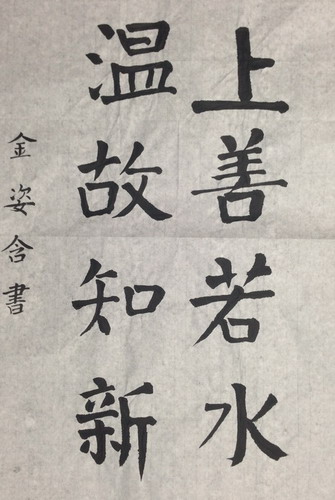 上善若水
温故知新
金姿含書